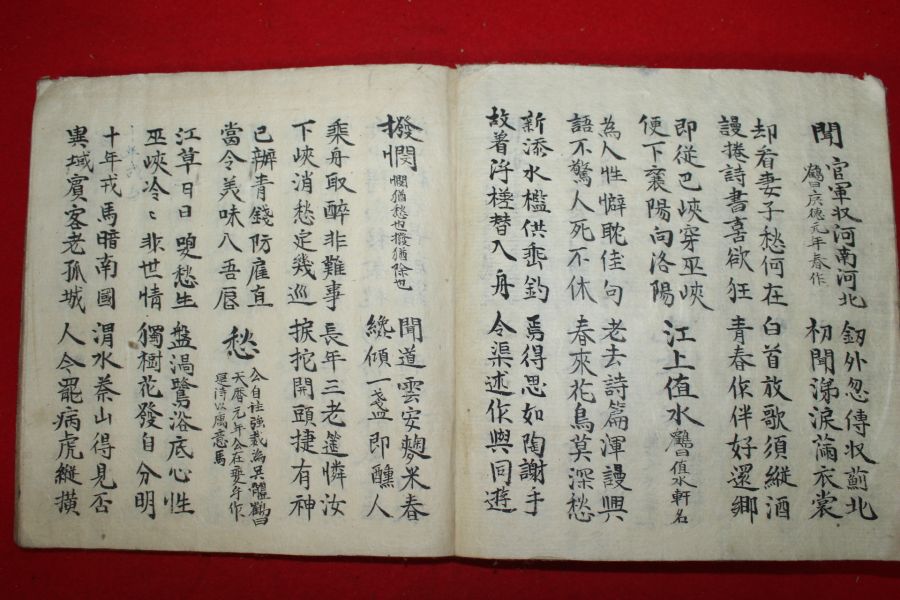 聞官軍収河南河北
鶴曰広徳元年春作
釼外忽傳収薊北
初聞涕淚滿衣裳
却看妻子愁何在
謾捲詩書喜欲狂
白首放歌須縱酒
青春作伴好還鄉
即從巴峽穿巫峽
便下襄陽向洛陽
江上值水
鶴曰值水軒名
為人性僻耽佳句
語不驚人死不休
老去詩篇渾謾興
春來花鳥莫深愁
新添水檻供垂釣
故着浮槎替入舟
焉得思如陶謝手
令渠述作與同遊
撥憫
憫猶愁也撥猶除也
聞道雲安麴米春
纔傾一盞即醺人
乘舟取醉非難事
下峽消愁定幾巡
長年三老遙憐汝
捩拕開頭捷有神
已辦青錢防雇直
當令美味入吾唇
愁
公自註強戯為吳體鶴曰
天暦元年公在夔年作
是詩以寓意焉
江草日日喚愁生
巫峽冷〻非世情
盤渦鷺浴底心性
獨樹花發自分明
十年戎馬暗南國
異域賓客老孤城
渭水秦山得見否
人今罷病虎縱橫